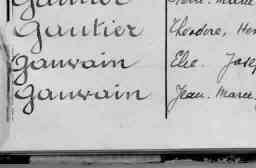 Gautier Théodore, Hen
Gauvain Elie. Josep
Gauvain Jean. Marce